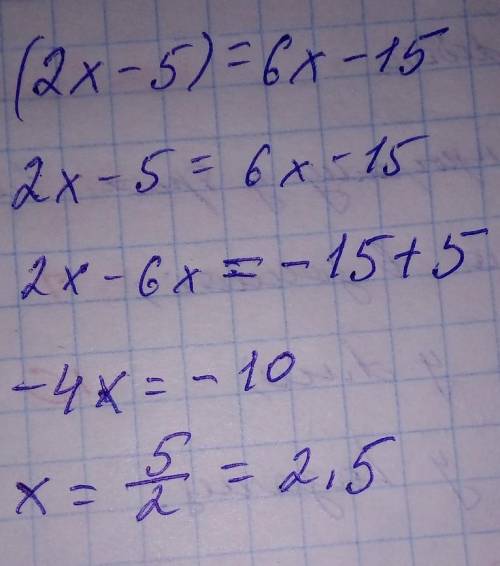 (2x-5)=6x-15
2x-5=6x-15
2x-6x=-15+5
-4x=-10
x=5/2=2,5